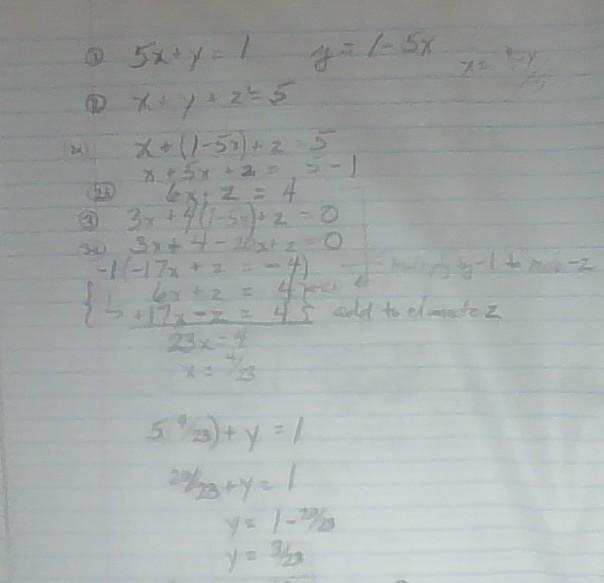 ① 5x + y = 1 y = 1 - 5x x =
② x + y + z = 5
x + (1-5x) + z = 5
x + 5x + z = 5 - 1
6x + z = 4
③ 3x + 4(1-5x) + z = 0
3x + 4 - 20x + z = 0
-1(-17x + z = -4) -1 to -z
6x + z = 4
+17x - z = 4 add to eliminate z
23x = 
x = 4/23
5(4/23) + y = 1
20/23 + y = 1
y = 1 - 20/23
y = 3/23